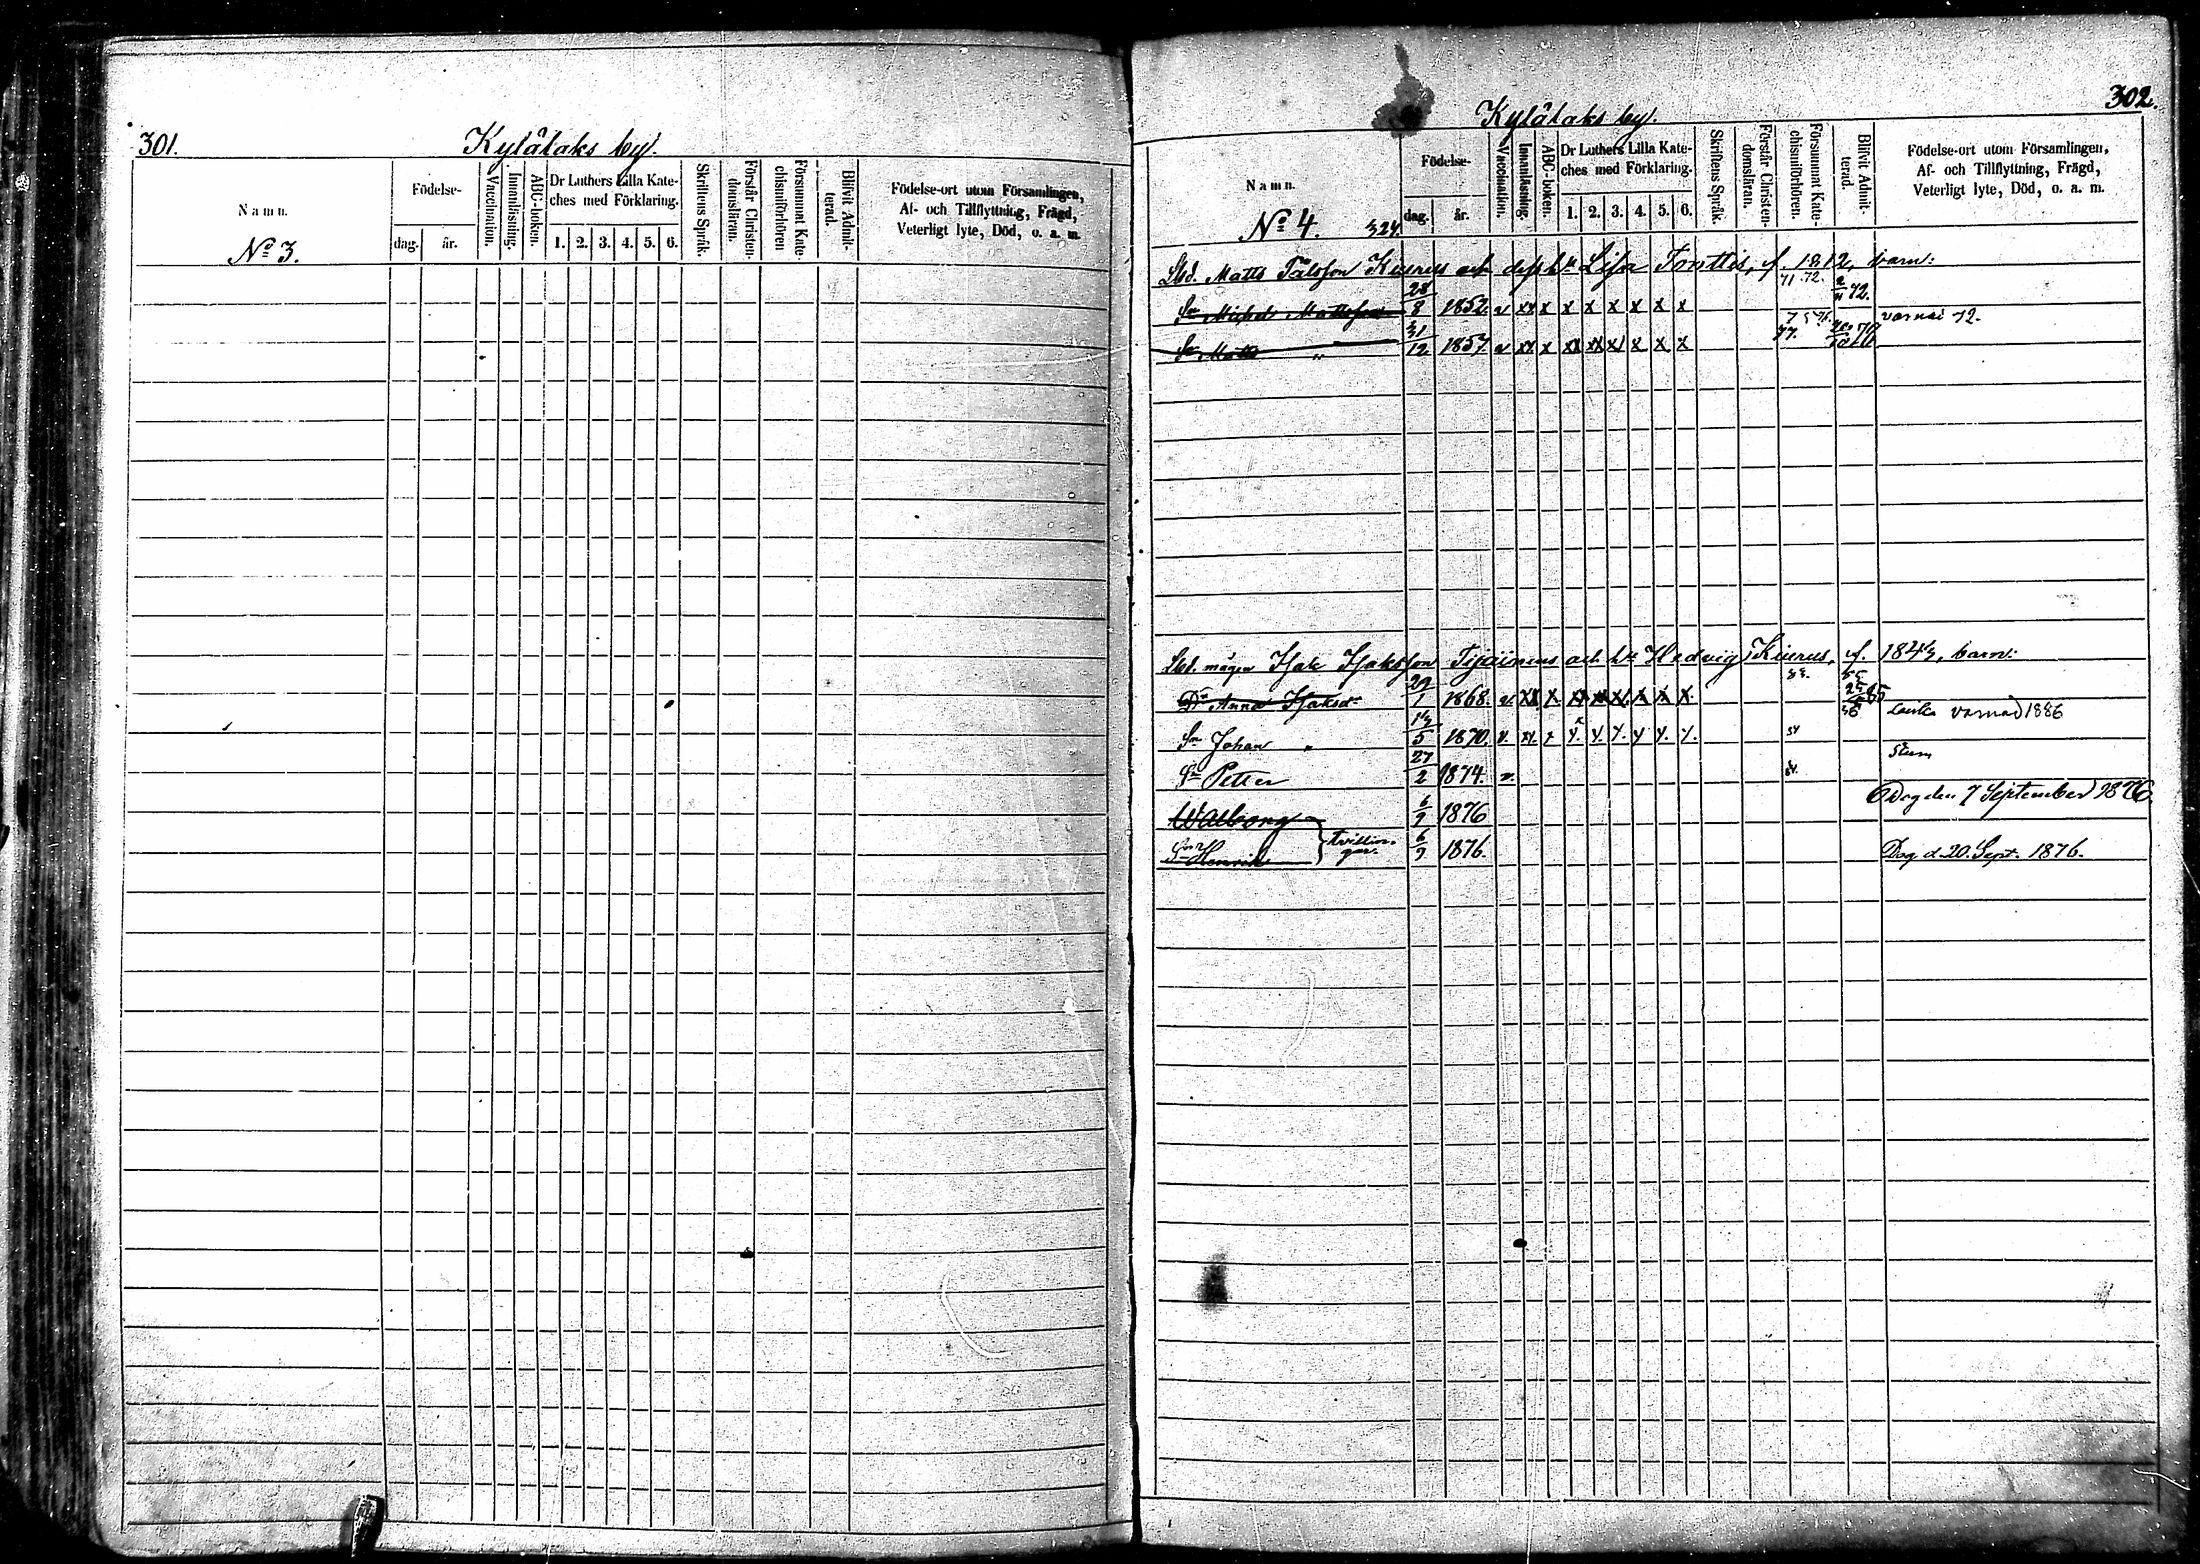 301.
Kylälaks by.
Namn.
No 3.
Födelse-
dag. år.
Vaccination.
Innanläsning.
ABC-boken.
Dr Luthers Lilla Kate-
ches med Förklaring.
1. 2. 3. 4. 5. 6.
Skriftens Språk.
Förstår Christen-
domsläran.
Försummat Kate-
chismiförhören
Blifvit Admit-
terad.
Födelse-ort utom Församlingen,
Af- och Tillflyttning, Frägd,
Veterligt lyte, Död, o. a. m.
302.
Kylälaks by.
Namn.
No 4. 324.
Födelse-
dag. år.
Vaccination.
Innanläsning.
ABC-boken.
Dr Luthers Lilla Kate-
ches med Förklaring.
1. 2. 3. 4. 5. 6.
Skriftens Språk.
Förstår Christen-
domsläran.
Försummat Kate-
chismiförhören.
Blifvit Admit-
terad.
Födelse-ort utom Församlingen,
Af- och Tillflyttning, Frägd,
Veterligt lyte, Död, o. a. m.
Matts Pålsson Kiuru och dess hu Lisa Tonttis, f. 1812, barn:
71.72.
Sn Michel Mattsson 28/8 1852. v xx x x x x x x x 72.
Sn Matts " 31/12 1857 v xx x xx xx x x x x 77.
måger Isak Isaksson och hu Hedvig Kiurus, f. 1843, barn:
Dr Anna Isaksdr 29/1 1868. v. xx x x x x x x x
1886
Sn Johan " 13/5 1870.
Sn Petter 27/2 1874. v.
Walborg 6/9 1876 Dog den 7 September 1876.
tvillin-
gar.
Sn Henrik 6/9 1876. Dog d. 20. Sept. 1876.